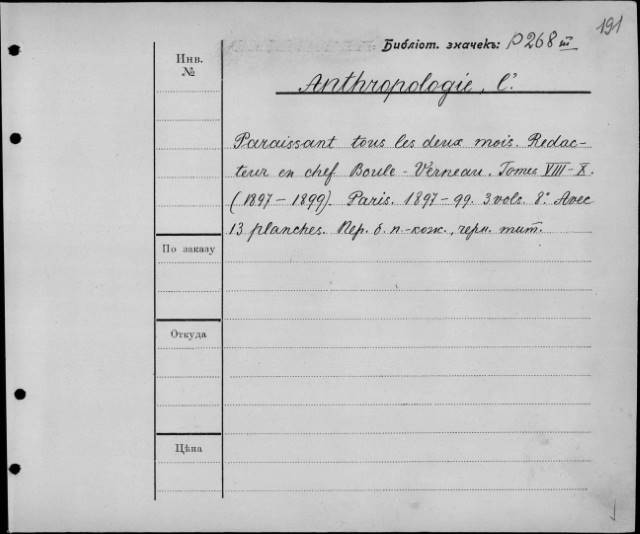 191
Библіот. значекъ: р 268 III
Инв.
№
Anthropologie, L'
Paraissant tous les deux mois. Redac-
teur en chef Boule - Verneau. Tomes VIII - X.
(1897 - 1899). Paris. 1897 - 99. 3 vols. 8° Avec
13 planches. Пер. б. п.-кож., черн. тит.
По заказу
Откуда
Цѣна